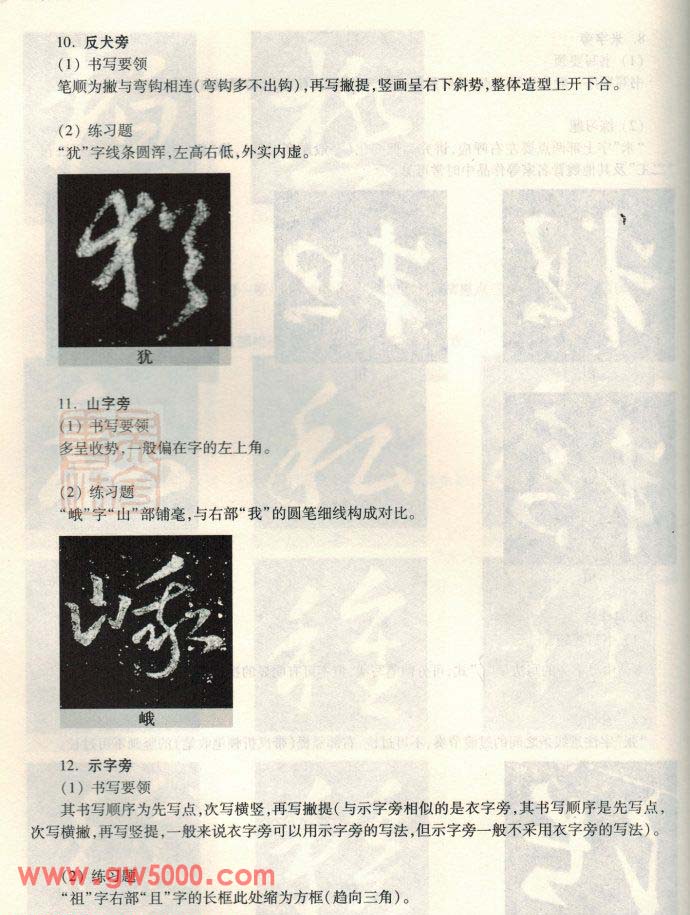 10. 反犬旁
(1) 书写要领
笔顺为撇与弯钩相连(弯钩多不出钩),再写撇提,竖画呈右下斜势,整体造型上开下合。
(2) 练习题
“犹”字线条圆浑,左高右低,外实内虚。
犹
11. 山字旁
(1) 书写要领
多呈收势,一般偏在字的左上角。
(2) 练习题
“峨”字“山”部铺毫,与右部“我”的圆笔细线构成对比。
峨
12. 示字旁
(1) 书写要领
其书写顺序为先写点,次写横竖,再写撇提(与示字旁相似的是衣字旁,其书写顺序是先写点,
次写横撇,再写竖提,一般来说衣字旁可以用示字旁的写法,但示字旁一般不采用衣字旁的写法)。
(2) 练习题
www.gw5000.com
“祖”字右部“且”字的长框此处缩为方框(趋向三角)。